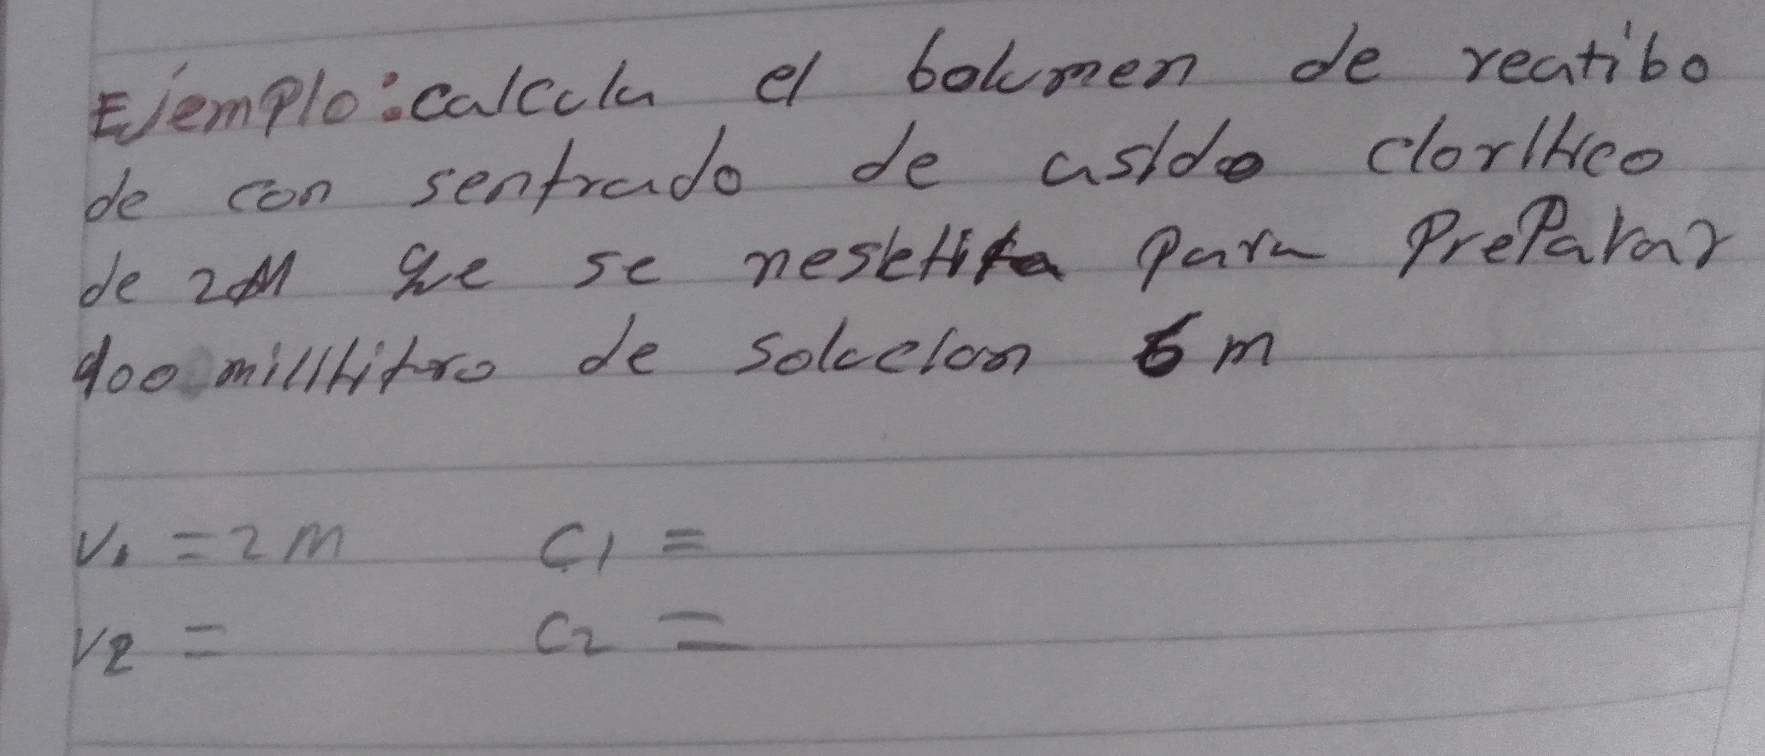 Ejemplo: calcula el bolumen de reatibo
de con sentrado de asido clorihico
de 2M que se nesetita para preparar
400 mililitro de solucion 6 m
V1 = 2m C1 =
V2 = C2 =